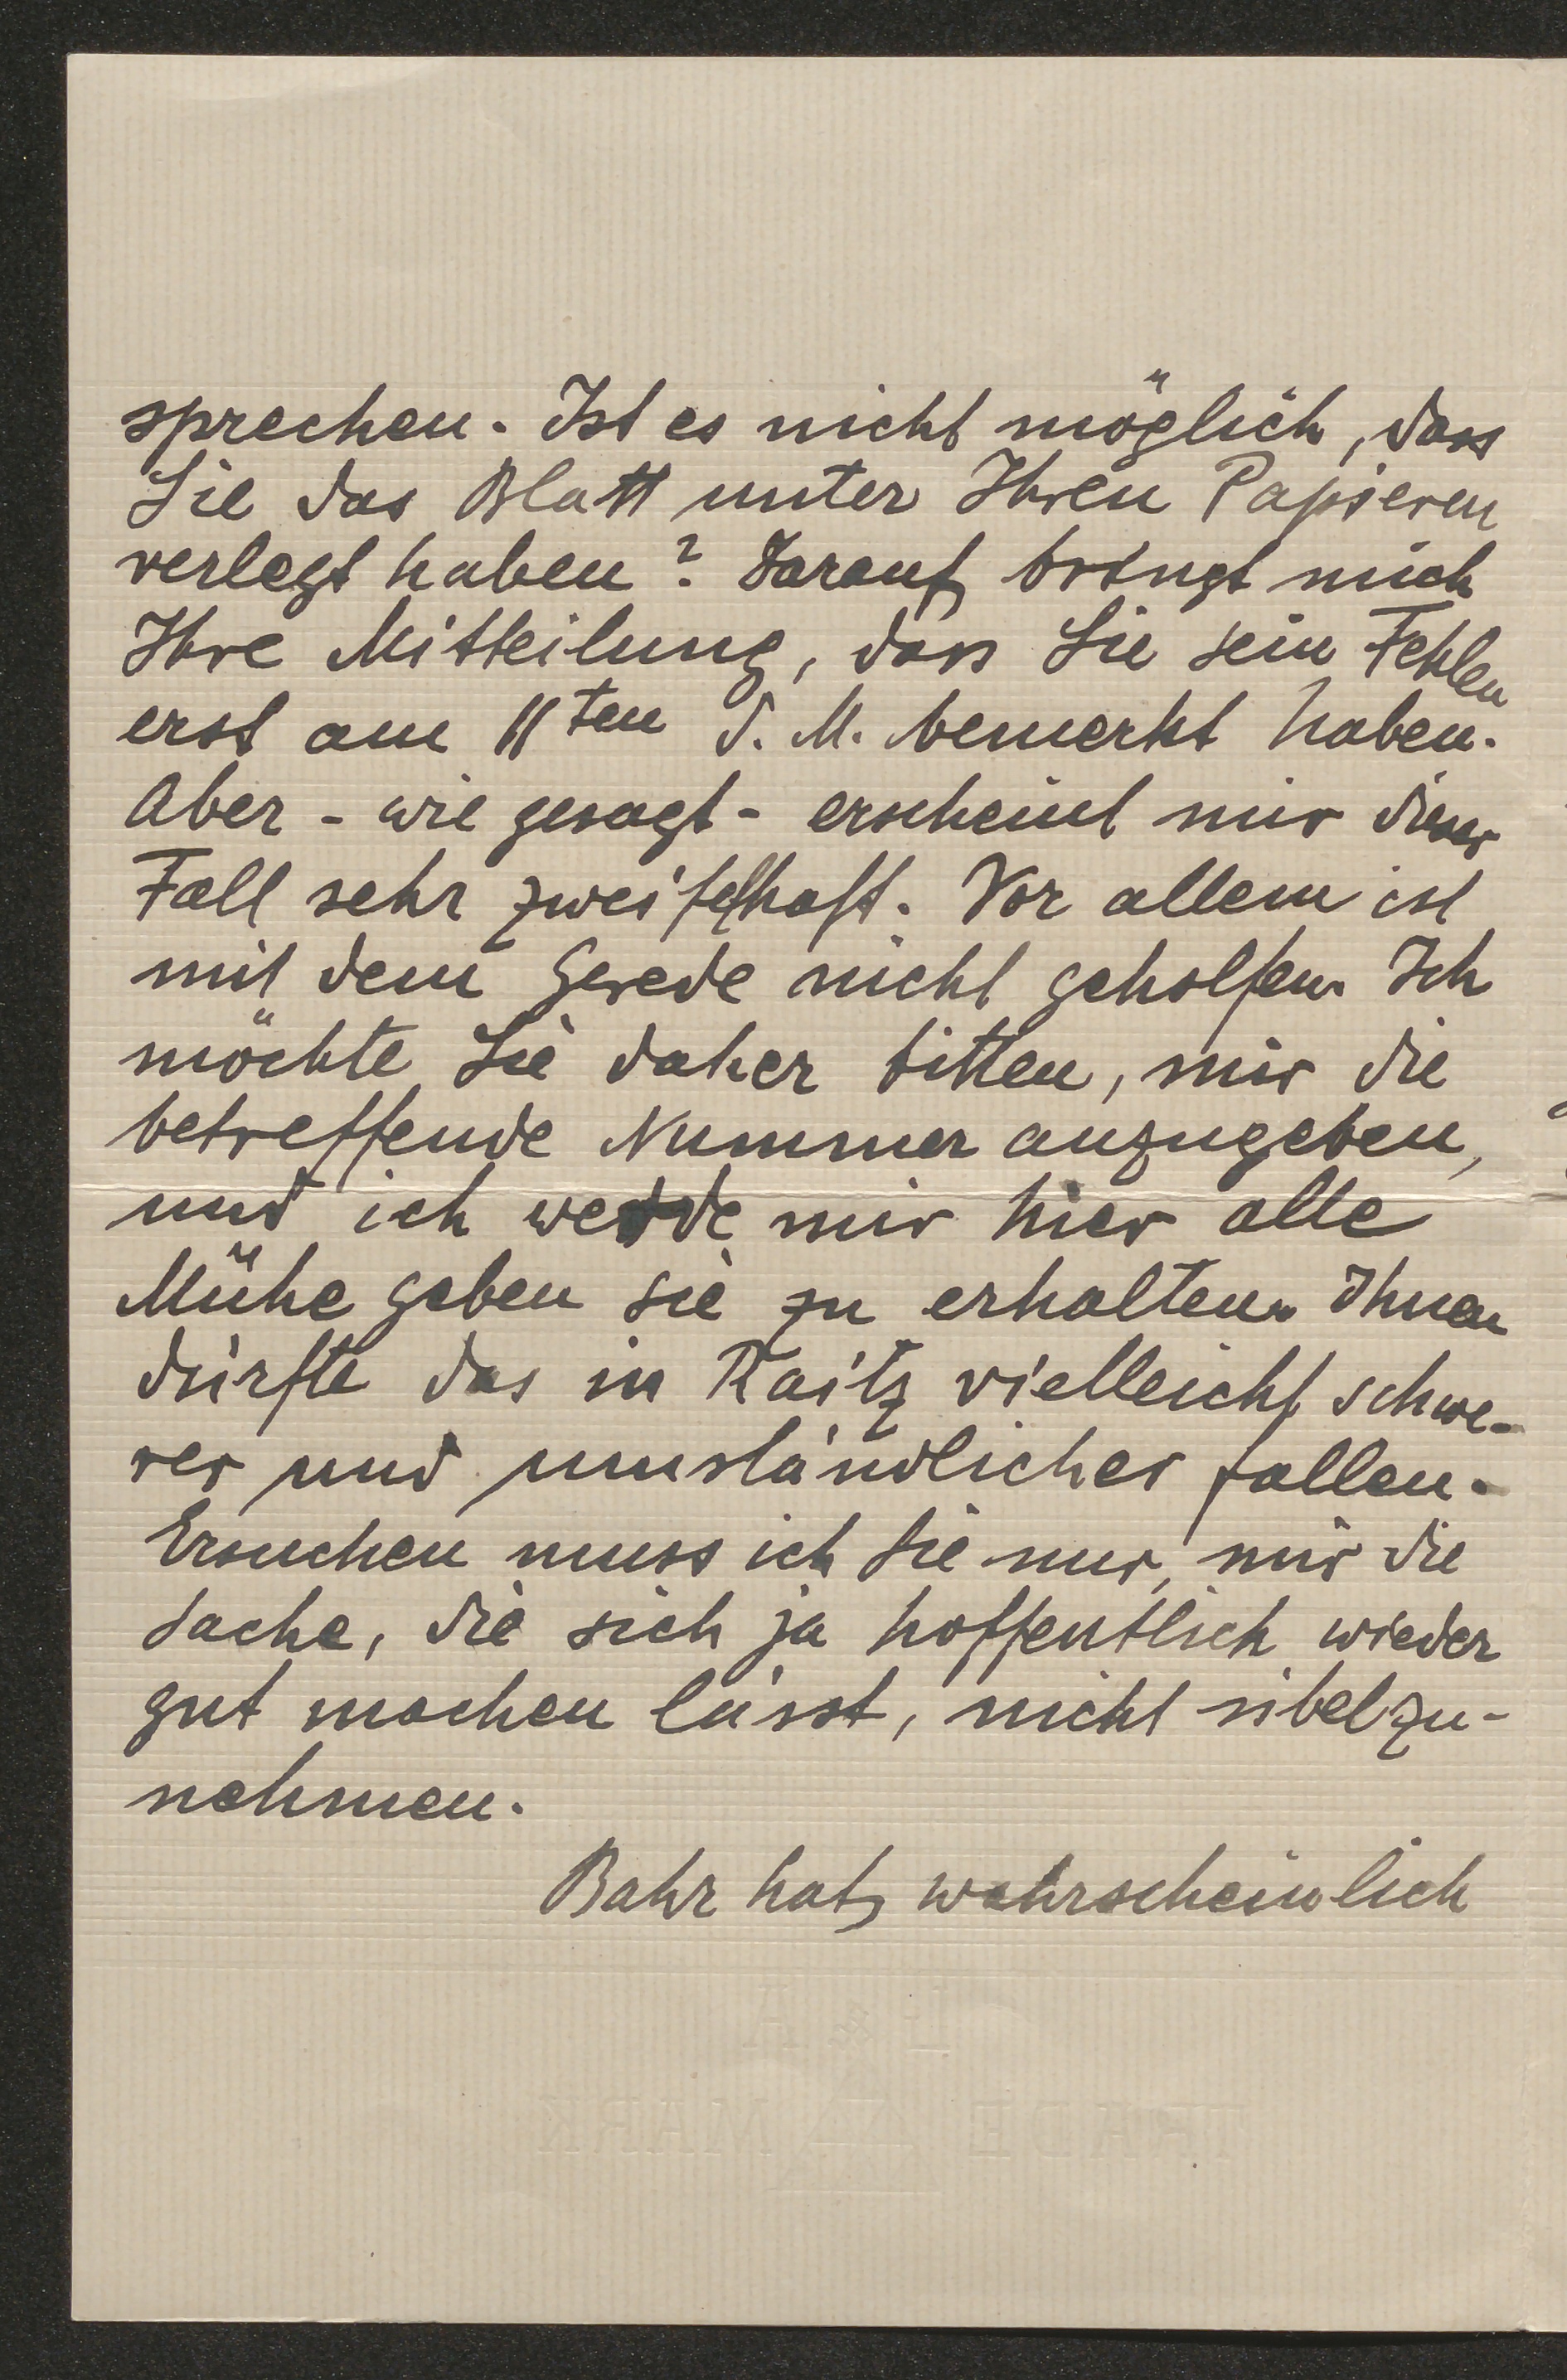 sprechen. Ist es nicht möglich, dass
Sie das Blatt unter Ihren Papieren
verlegt haben? Darauf bringt mich
Ihre Mitteilung, dass Sie sein Fehlen
erst am 11ten d. M. bemerkt haben.
Aber - wie gesagt - erscheint mir dieser
Fall sehr zweifelhaft. Vor allem ist
mit dem Gerede nicht geholfen. Ich
möchte Sie daher bitten, mir die
betreffende Nummer anzugeben,
und ich werde mir hier alle
Mühe geben sie zu erhalten. Ihnen
dürfte das in Raitz vielleicht schwe-
rer und umständlicher fallen.
Ersuchen muss ich Sie nur, mir die
Sache, die sich ja hoffentlich wieder
gut machen lässt, nicht übelzu-
nehmen.
Bahr hat, wahrscheinlich
TRADE MARK